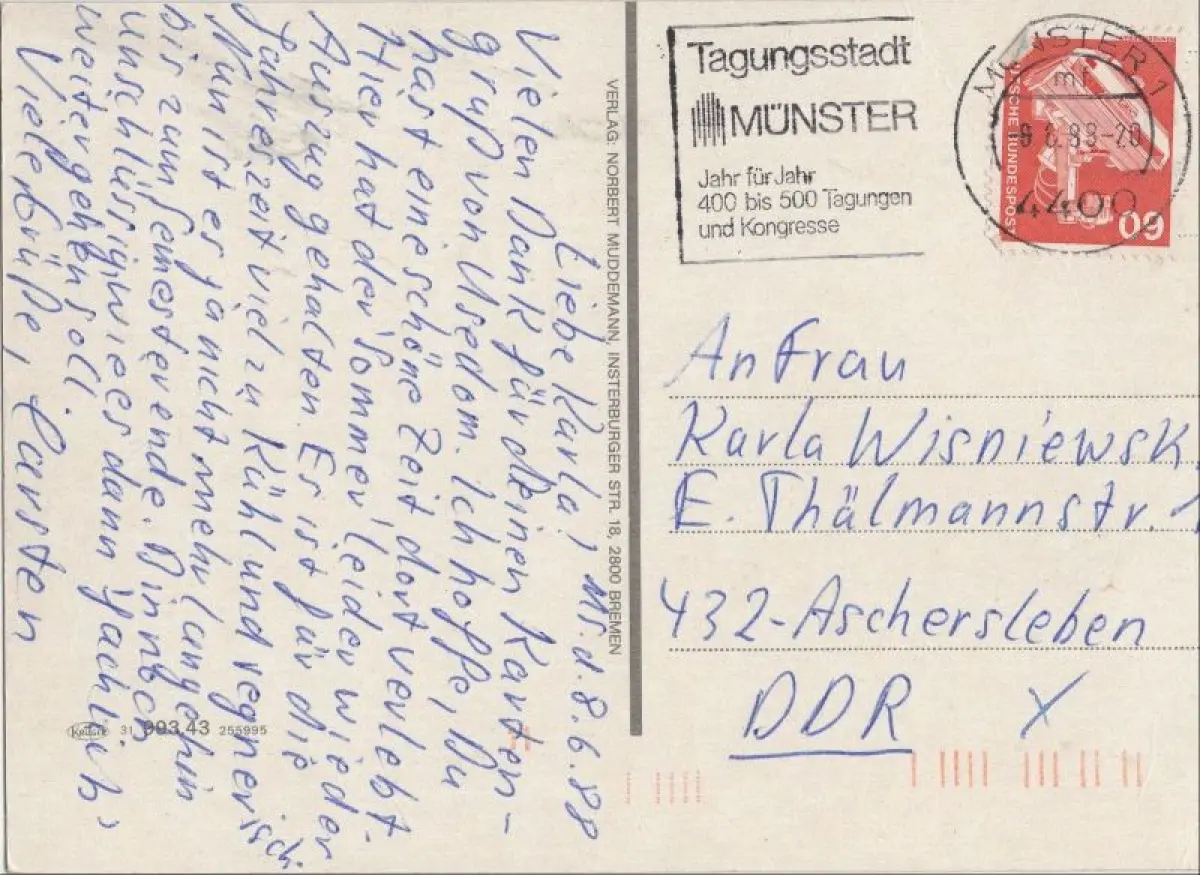 Liebe Karla, Ms. d. 8.6.88
Vielen Dank für deinen Karten-
gruß von Usedom. Ich hoffe, Du
hast eine schöne Zeit dort verlebt.
Hier hat der Sommer leider wieder
Auszug gehalten. Es ist für die
Jahreszeit viel zu kühl und regnerisch.
Nun ist es ja nicht mehr lange hin
bis zum Semesterende. Bin noch
unschlüssig wie es dann fachlich
weitergehen soll.
Viele Grüße, Carsten
VERLAG: NORBERT MUDDEMANN, INSTERBURGER STR. 18, 2800 BREMEN
31 993.43 255995
Tagungsstadt
MÜNSTER
Jahr für Jahr
400 bis 500 Tagungen
und Kongresse
MÜNSTER 1
mf
6.88-20
4400
DEUTSCHE BUNDESPOST
60
An Frau
Karla Wisniewsk
E. Thälmannstr.
432-Aschersleben
DDR X